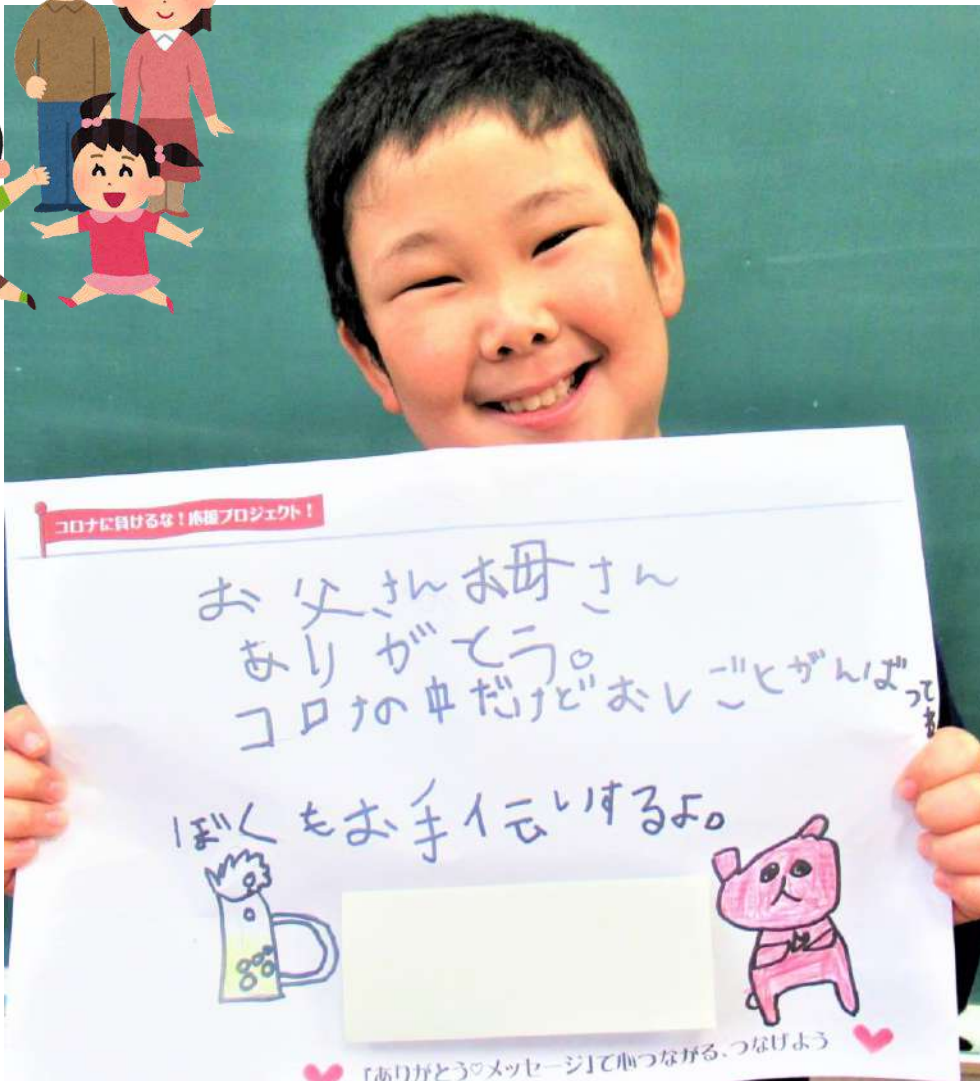 コロナに負けるな！応援プロジェクト！
お父さんお母さん
ありがとう。
コロナの中だけどおしごとがんばって
ぼくもお手伝いするよ。
「ありがとう♡メッセージ」で心つながる、つなげよう